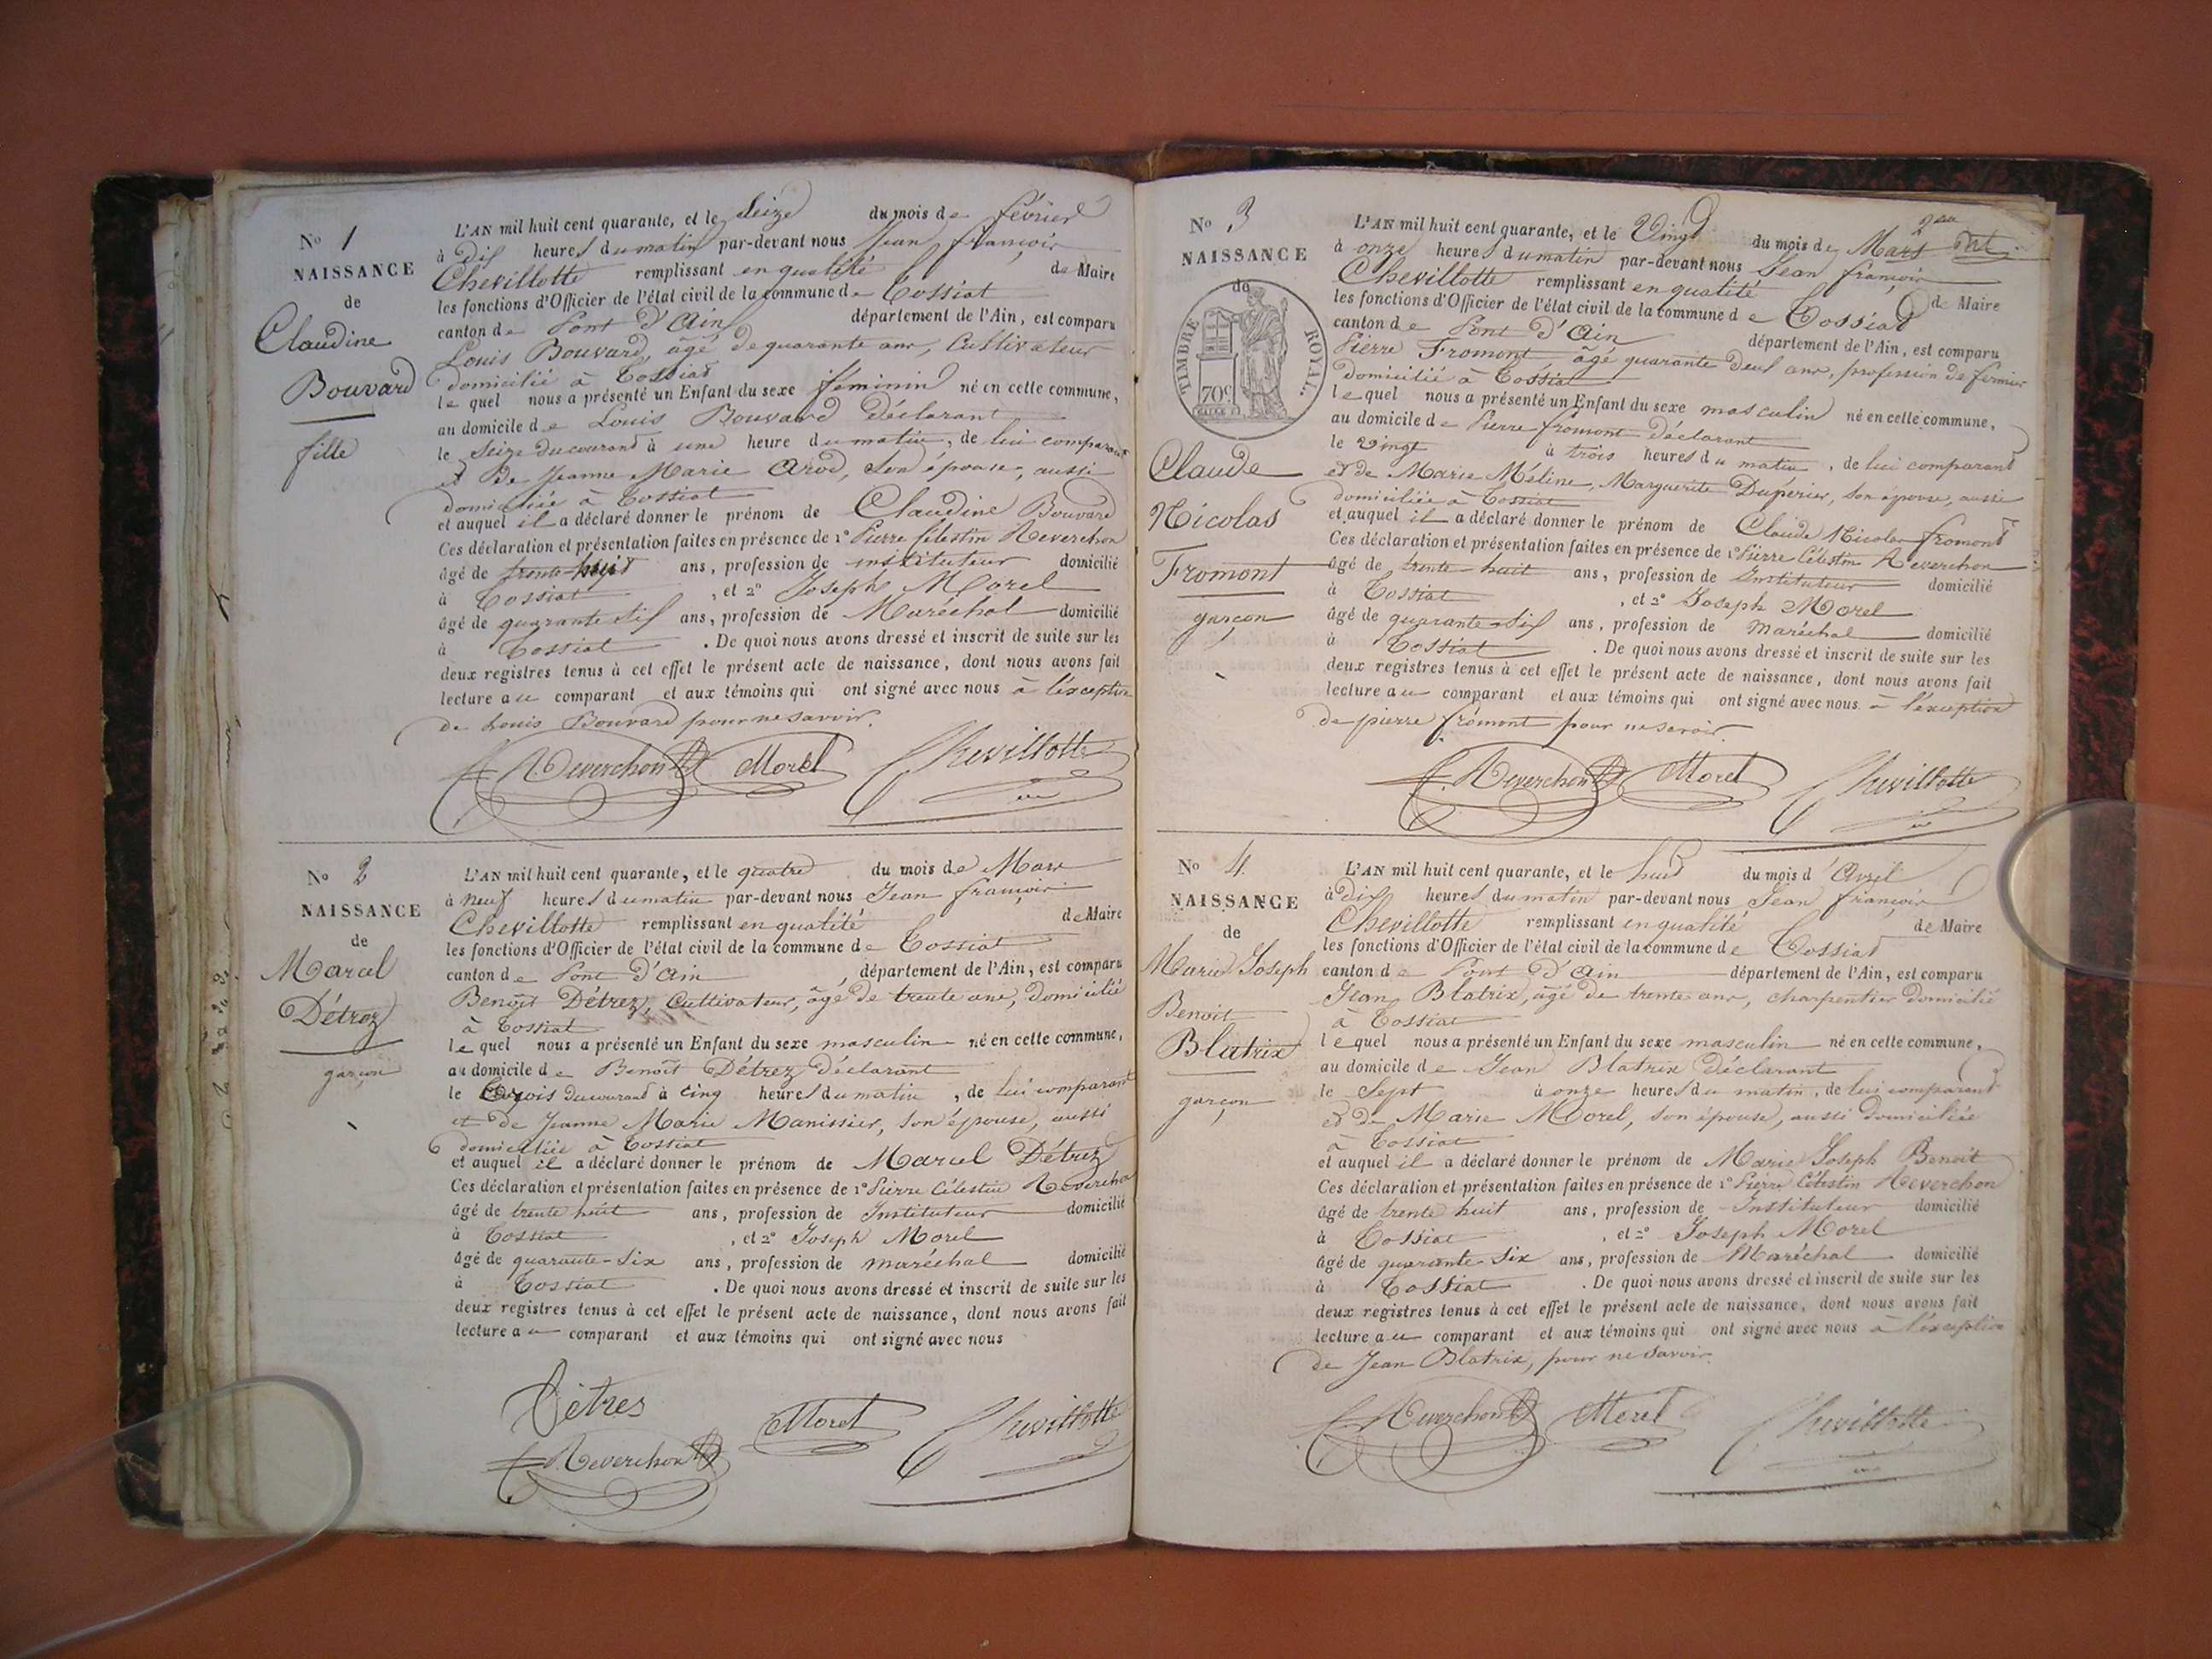 N° 1
NAISSANCE
de
Claudine
Bouvard
fille
L'AN mil huit cent quarante, et le Seize du mois de février
à Dix heures du matin par-devant nous Jean françois
Chevillotte remplissant en qualité de Maire
les fonctions d'Officier de l'état civil de la commune de Tossiat
canton de Pont d'Ain département de l'Ain, est comparu
Louis Bouvard, âgé de quarante ans, Cultivateur
domicilié à Tossiat
lequel nous a présenté un Enfant du sexe féminin né en cette commune,
au domicile de Louis Bouvard Déclarant
le Seize du courant à une heure du matin, de lui comparant
et de Jeanne Marie Arod, Son épouse, aussi
domiciliée à Tossiat
et auquel il a déclaré donner le prénom de Claudine Bouvard
Ces déclaration et présentation faites en présence de 1° Pierre Célestin Reverchon
âgé de trente-huit ans, profession de instituteur domicilié
à Tossiat, et 2° Joseph Morel
âgé de quarante six ans, profession de Maréchal domicilié
à Tossiat. De quoi nous avons dressé et inscrit de suite sur les
deux registres tenus à cet effet le présent acte de naissance, dont nous avons fait
lecture au comparant et aux témoins qui ont signé avec nous à l'exception
de Louis Bouvard pour ne savoir.
Reverchon Morel Chevillotte
N° 2
NAISSANCE
de
Marcel
Détrez
garçon
L'AN mil huit cent quarante, et le quatre du mois de Mars
à neuf heures du matin par-devant nous Jean françois
Chevillotte remplissant en qualité de Maire
les fonctions d'Officier de l'état civil de la commune de Tossiat
canton de Pont d'Ain, département de l'Ain, est comparu
Benoît Détrez, Cultivateur, âgé de trente ans, domicilié
à Tossiat
lequel nous a présenté un Enfant du sexe masculin né en cette commune,
au domicile de Benoît Détrez Déclarant
le trois du courant à cinq heures du matin, de lui comparant
et de Jeanne Marie Manissier, Son épouse, aussi
domiciliée à Tossiat
et auquel il a déclaré donner le prénom de Marcel Détrez
Ces déclaration et présentation faites en présence de 1° Pierre Célestin Reverchon
âgé de trente huit ans, profession de Instituteur domicilié
à Tossiat, et 2° Joseph Morel
âgé de quarante-six ans, profession de maréchal domicilié
à Tossiat. De quoi nous avons dressé et inscrit de suite sur les
deux registres tenus à cet effet le présent acte de naissance, dont nous avons fait
lecture au comparant et aux témoins qui ont signé avec nous
Détres
Reverchon Morel Chevillotte
N° 3
NAISSANCE
de
TIMBRE ROYAL.
70c
Claude
Nicolas
Fromont
garçon
L'AN mil huit cent quarante, et le Vingt du mois de Mars
à onze heures du matin par-devant nous Jean françois
Chevillotte remplissant en qualité de Maire
les fonctions d'Officier de l'état civil de la commune de Tossiat
canton de Pont d'Ain département de l'Ain, est comparu
Pierre Fromont âgé quarante deux ans, profession de fermier
domicilié à Tossiat
lequel nous a présenté un Enfant du sexe masculin né en cette commune,
au domicile de Pierre fromont Déclarant
le vingt à trois heures du matin, de lui comparant
et de Marie Méline, Marguerite Dupérier, Son épouse, aussi
domiciliée à Tossiat
et auquel il a déclaré donner le prénom de Claude Nicolas fromont
Ces déclaration et présentation faites en présence de 1° Pierre Célestin Reverchon
âgé de trente-huit ans, profession de Instituteur domicilié
à Tossiat, et 2° Joseph Morel
âgé de quarante-six ans, profession de maréchal domicilié
à Tossiat. De quoi nous avons dressé et inscrit de suite sur les
deux registres tenus à cet effet le présent acte de naissance, dont nous avons fait
lecture au comparant et aux témoins qui ont signé avec nous à l'exception
de pierre fromont pour ne savoir.
Reverchon Morel Chevillotte
N° 4
NAISSANCE
de
Marie Joseph
Benoit
Blatrix
garçon
L'AN mil huit cent quarante, et le huit du mois d'Avril
à Dix heures du matin par-devant nous Jean françois
Chevillotte remplissant en qualité de Maire
les fonctions d'Officier de l'état civil de la commune de Tossiat
canton de Pont d'Ain département de l'Ain, est comparu
Jean Blatrix, âgé de trente ans, charpentier domicilié
à Tossiat
lequel nous a présenté un Enfant du sexe masculin né en cette commune,
au domicile de Jean Blatrix Déclarant
le Sept à onze heures du matin, de lui comparant
et de Marie Morel, son épouse, aussi domiciliée
à Tossiat
et auquel il a déclaré donner le prénom de Marie Joseph Benoit
Ces déclaration et présentation faites en présence de 1° Pierre Célestin Reverchon
âgé de trente huit ans, profession de Instituteur domicilié
à Tossiat, et 2° Joseph Morel
âgé de quarante-six ans, profession de Maréchal domicilié
à Tossiat. De quoi nous avons dressé et inscrit de suite sur les
deux registres tenus à cet effet le présent acte de naissance, dont nous avons fait
lecture au comparant et aux témoins qui ont signé avec nous à l'exception
de Jean Blatrix, pour ne savoir.
Reverchon Morel Chevillotte